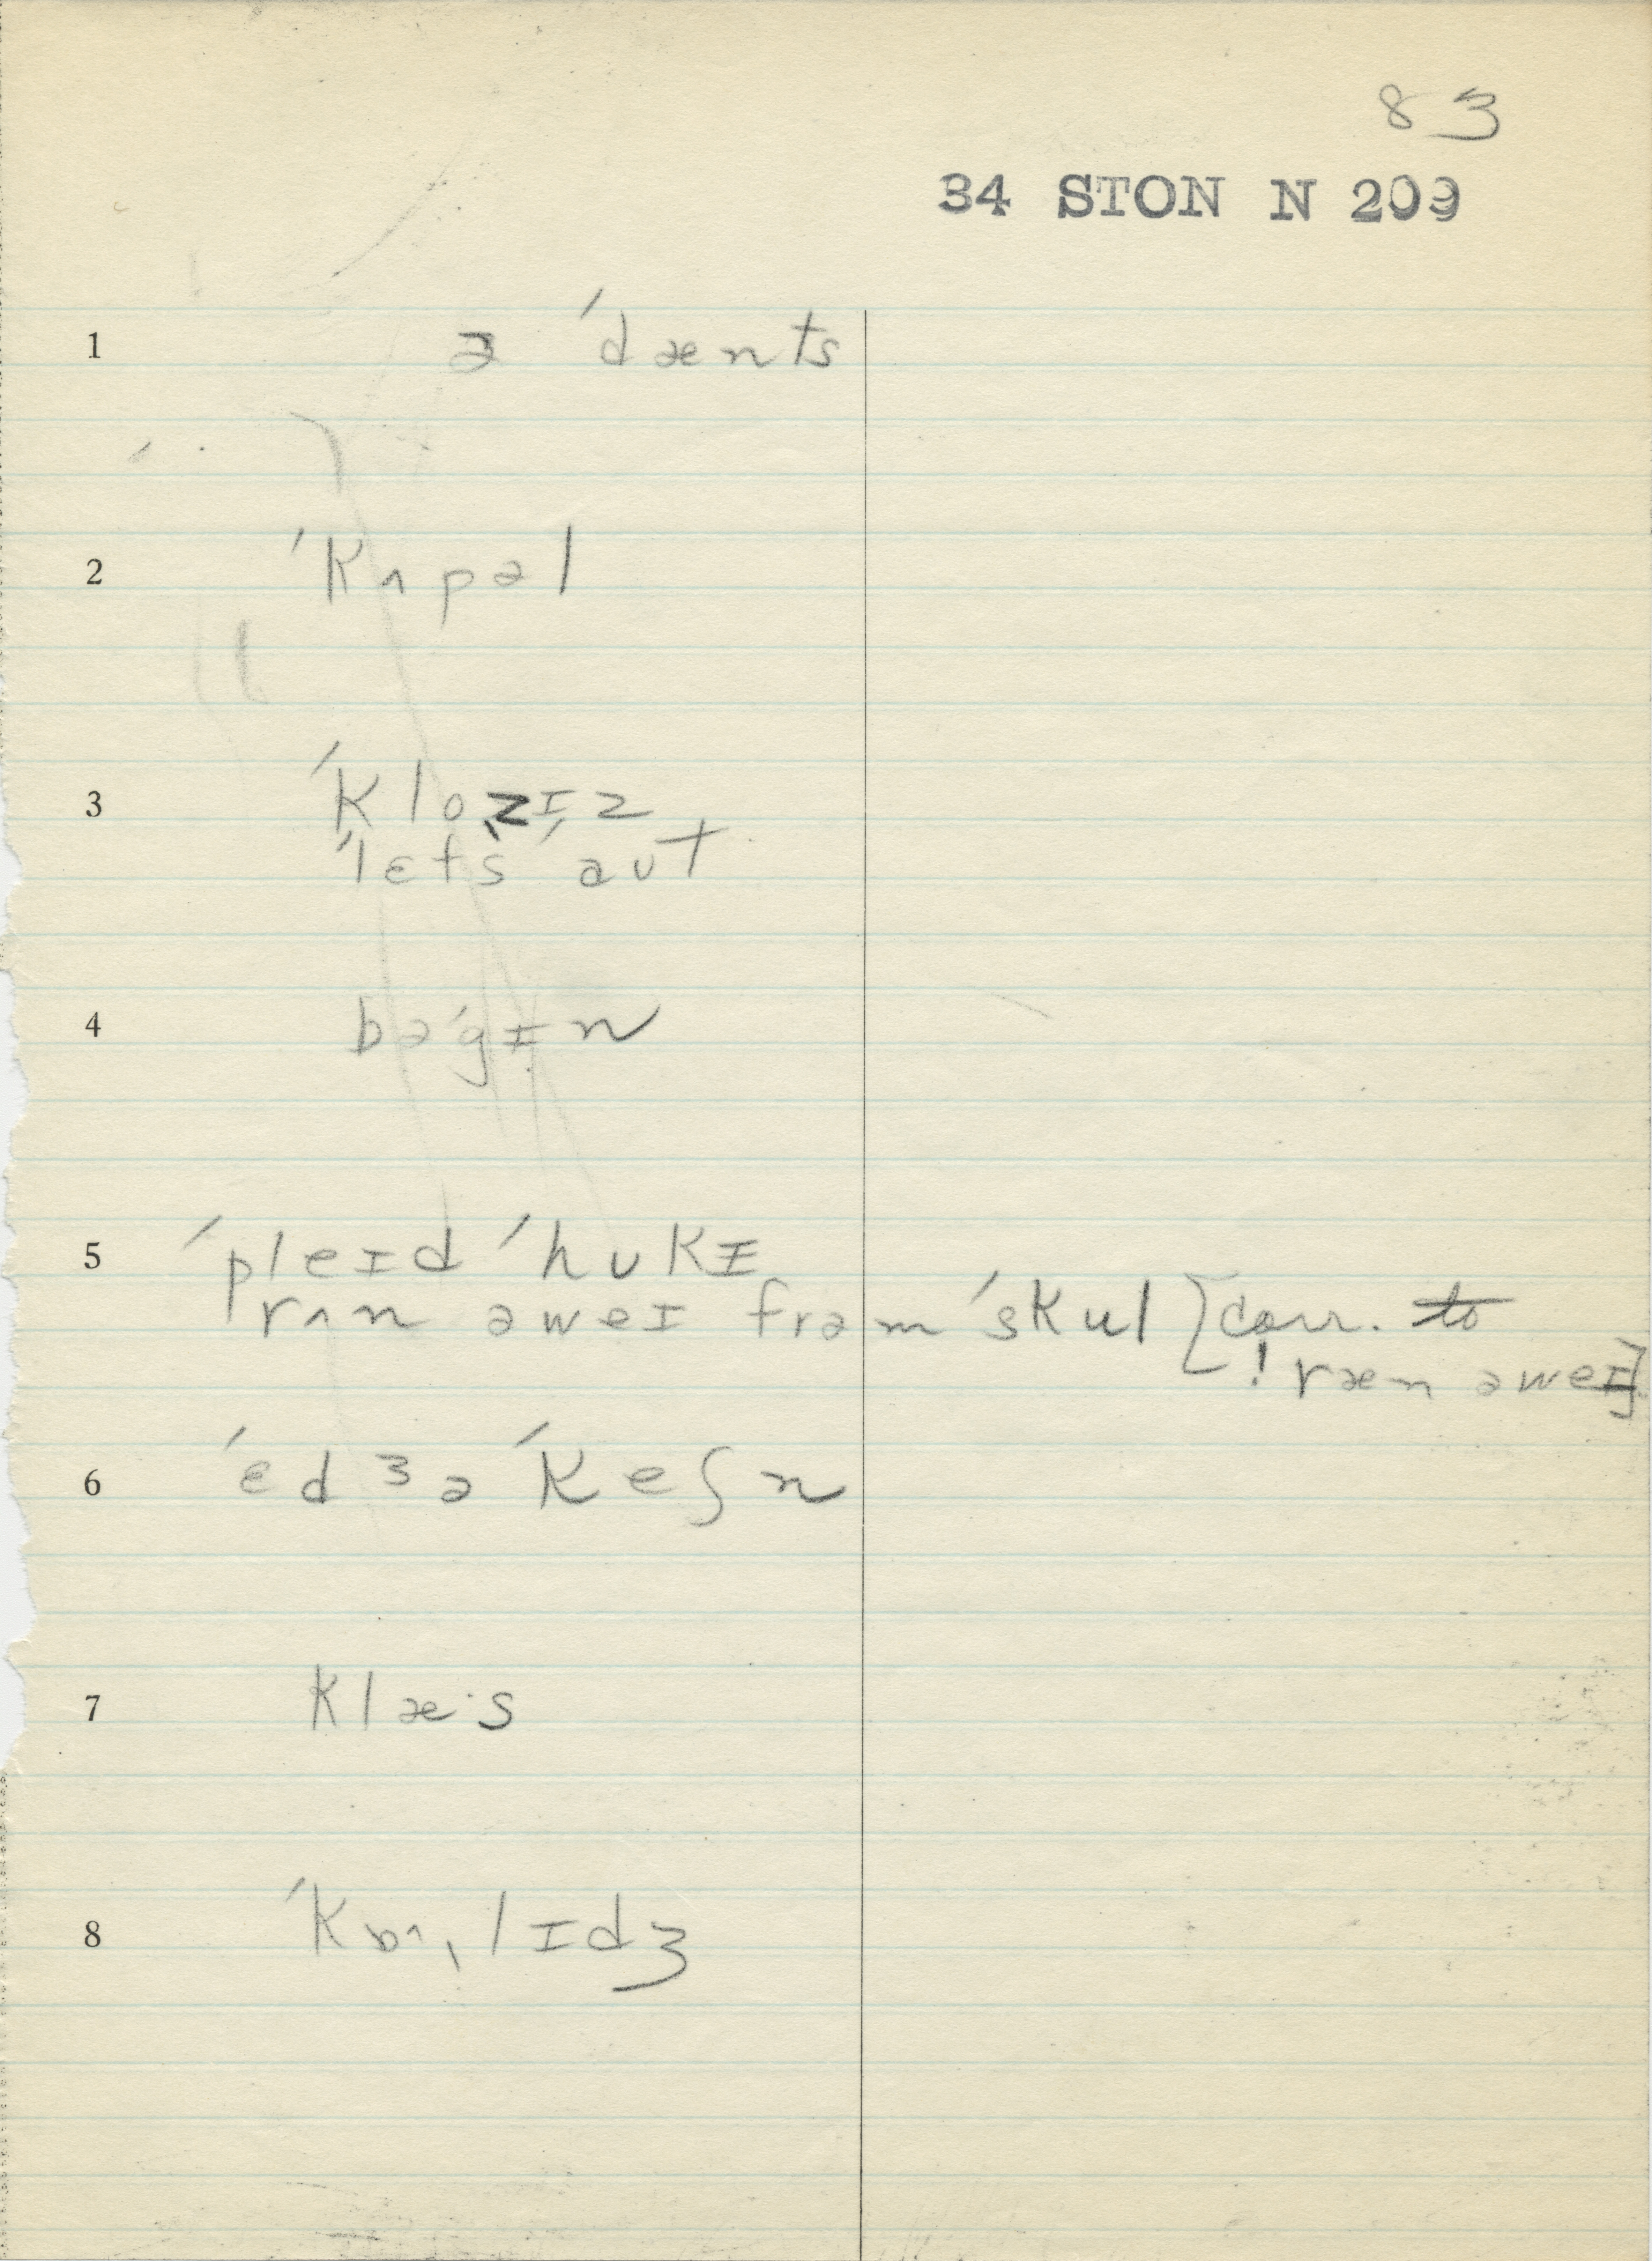 83
34 STON N 209
1 ə ˈdænts
2 ˈkʌpəl
3 ˈklozɪz
ˈlɛts ˈaʊt
4 bəˈgɪn
5 ˈpleɪd ˈhʊkɪ
rʌn əweɪ frəm ˈskul [corr. to
! ræn əweɪ]
6 ˈɛdʒəˈkeʃn
7 klæ·s
8 ˈkɒˌlɪdʒ